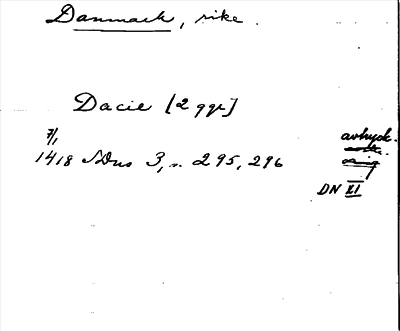 Danmark, rike.
Dacie [2 ggr]
7/1
1418 SDns 3, s. 295, 296
avtryck.
orig
DN XI